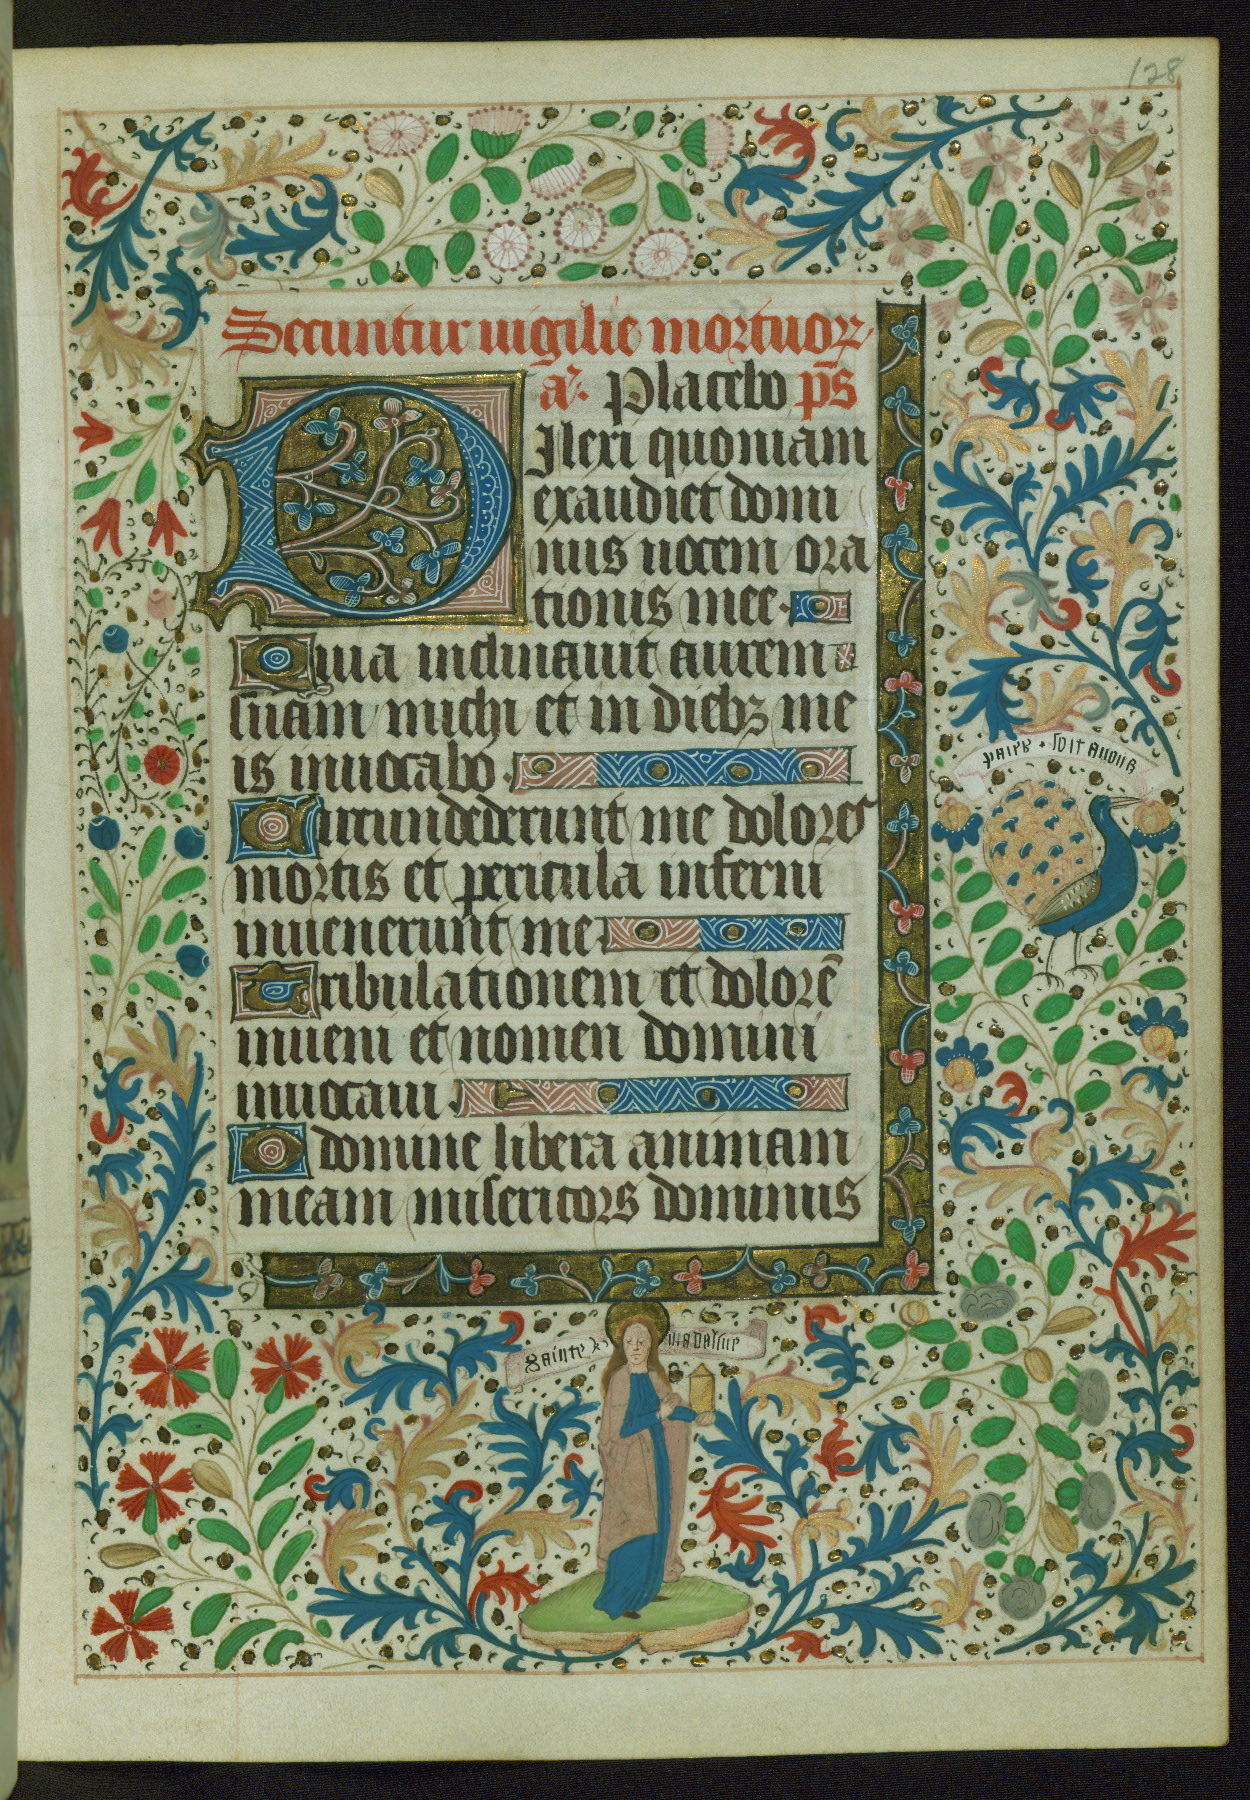 128
Secuntur uigilie mortuorꝝ
a͛. Placebo p̄s
Dilexi quoniam
exaudiet domi
nus uocem ora
tionis mee.
Quia inclinauit aurem
suam michi et in diebꝫ me
is inuocabo.
Circumdederunt me dolores
mortis et pericula inferni
inuenerunt me.
Tribulationem et dolorē
inueni et nomen domini
inuocaui.
O domine libera animam
meam misericors dominus
paier soit
Sainte